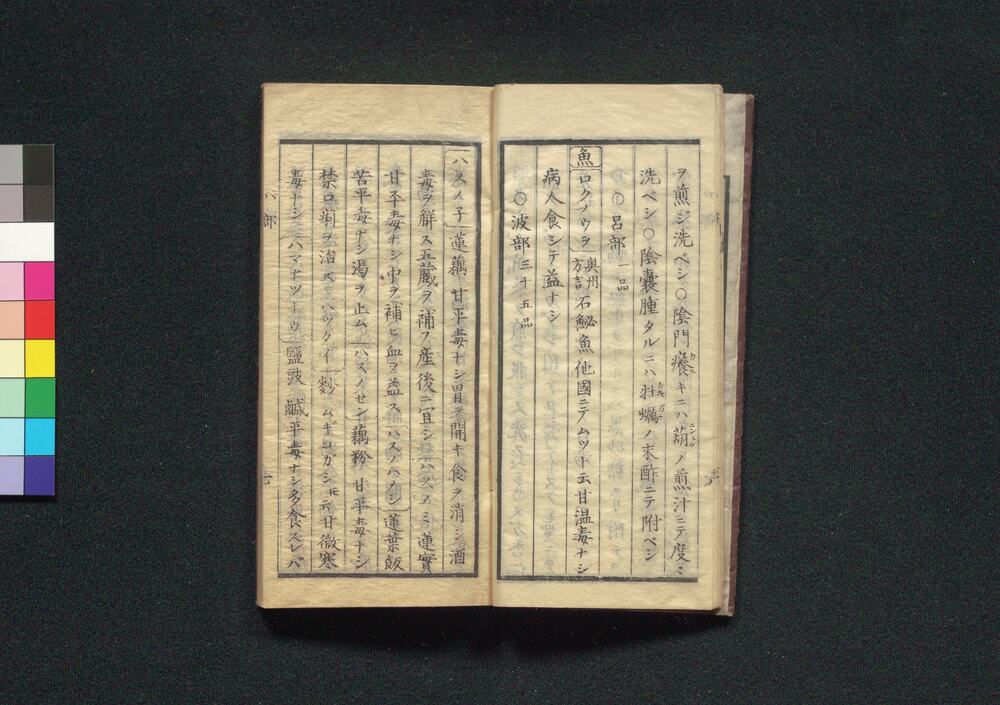 ヲ煎ジ洗ベシ〇陰門癢キニハ葫ノ煎汁ニテ度ミ
洗ベシ〇陰囊腫タルニハ牡蠣ノ末酢ニテ附ベシ
〇呂部 一品
魚 ロクノウヲ 奥州方言 石鮅魚 他國ニテムツト云甘温毒ナシ
病人食シテ益ナシ
〇波部 三十五品
ハスノ子 蓮藕 甘平毒ナシ胃ヲ開キ食ヲ消シ酒
毒ヲ解ス五蔵ヲ補フ産後ニ宜シ ハスノミ 蓮實
甘平毒ナシ中ヲ補ヒ血ヲ益ス ハスノハメシ 蓮葉飯
苦平毒ナシ渇ヲ止ム ハスノセン 藕粉 甘平毒ナシ
禁口痢ヲ治ス ハツタイ 麨 ムギコガシ 甘微寒
毒ナシ ハマナツトウ 鹽豉 鹹平毒ナシ多食スレバ
ハ部